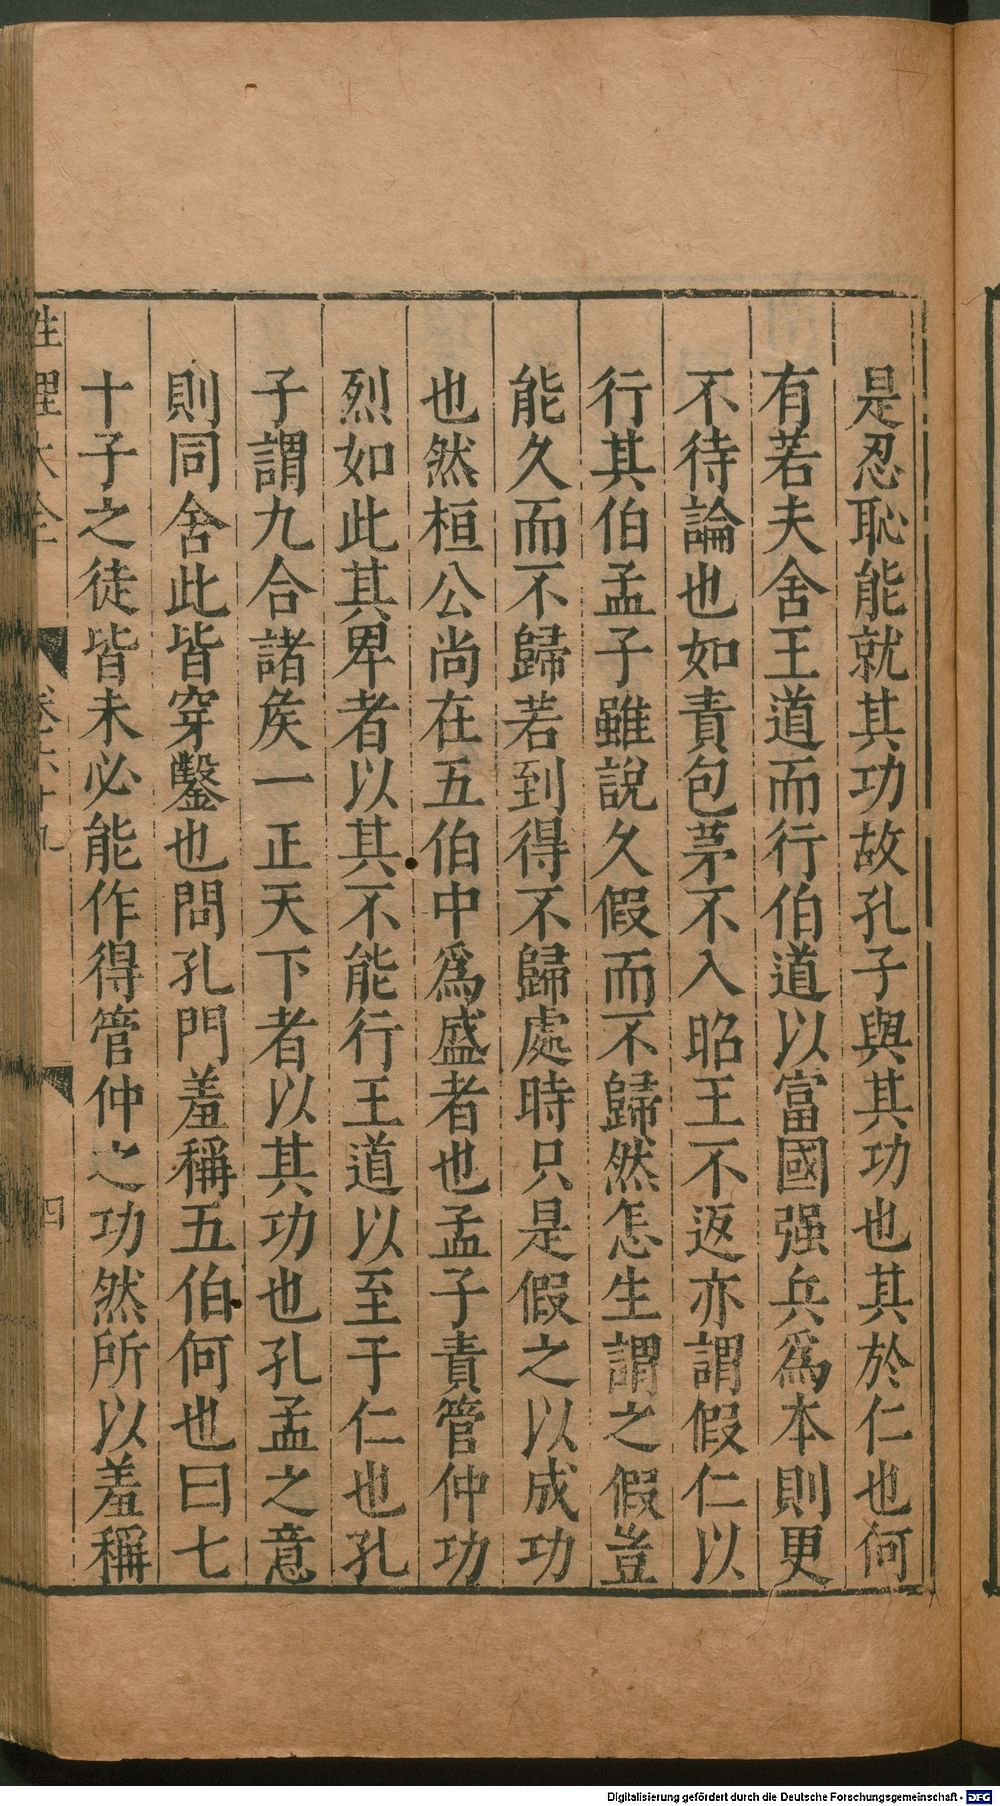 是忍恥能就其功故孔子與其功也其於仁也何
有若夫舍王道而行伯道以富國强兵爲本則更
不待論也如責包茅不入昭王不返亦謂假仁以
行其伯孟子雖說久假而不歸然怎生謂之假豈
能久而不歸若到得不歸處時只是假之以成功
也然桓公尚在五伯中爲盛者也孟子責管仲功
烈如此其卑者以其不能行王道以至于仁也孔
子謂九合諸矦一正天下者以其功也孔孟之意
則同舍此皆穿鑿也問孔門羞稱五伯何也曰七
十子之徒皆未必能作得管仲之功然所以羞稱
性理大全 卷六十九 四
Digitalisierung gefördert durch die Deutsche Forschungsgemeinschaft - DFG